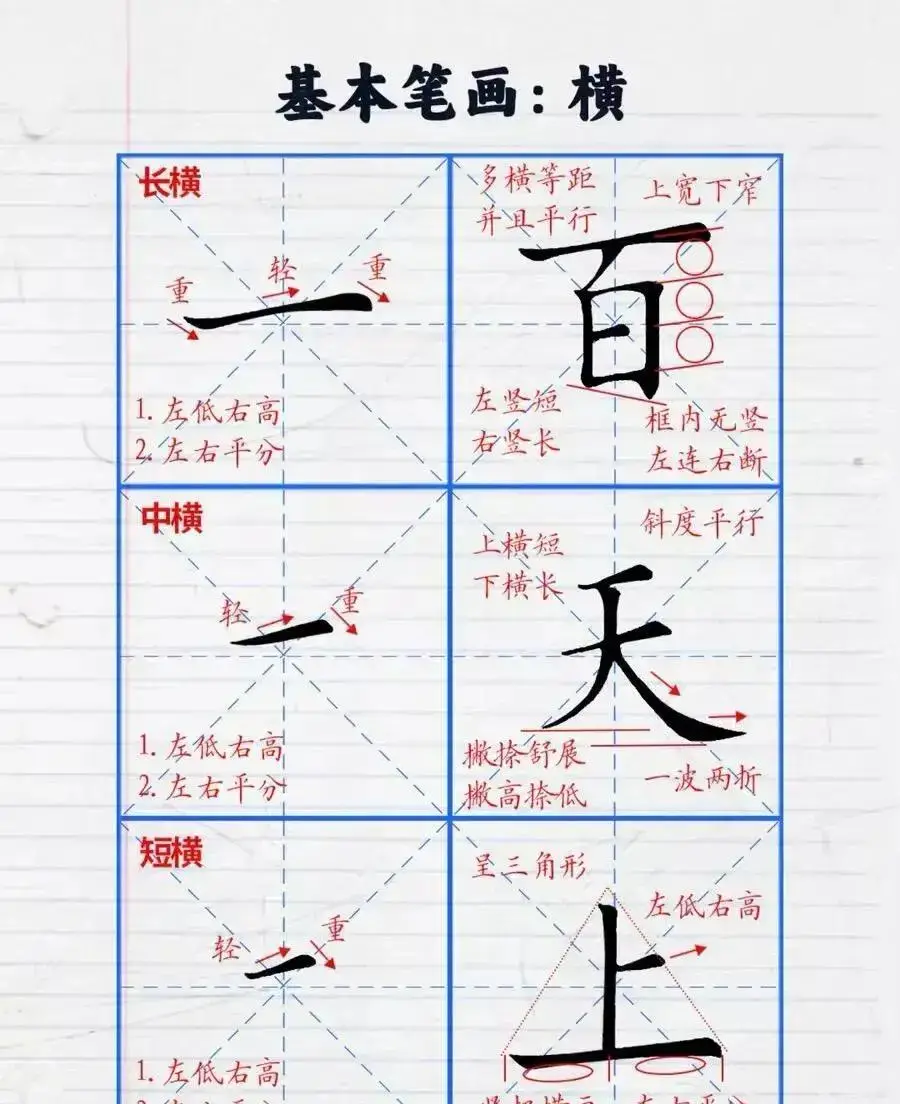 基本笔画：横
长横
重
轻
重
1. 左低右高
2. 左右平分
多横等距
并且平行
上宽下窄
百
左竖短
右竖长
框内无竖
左连右断
中横
轻
重
1. 左低右高
2. 左右平分
上横短
下横长
斜度平行
天
撇捺舒展
撇高捺低
一波两折
短横
轻
重
1. 左低右高
呈三角形
左低右高
上